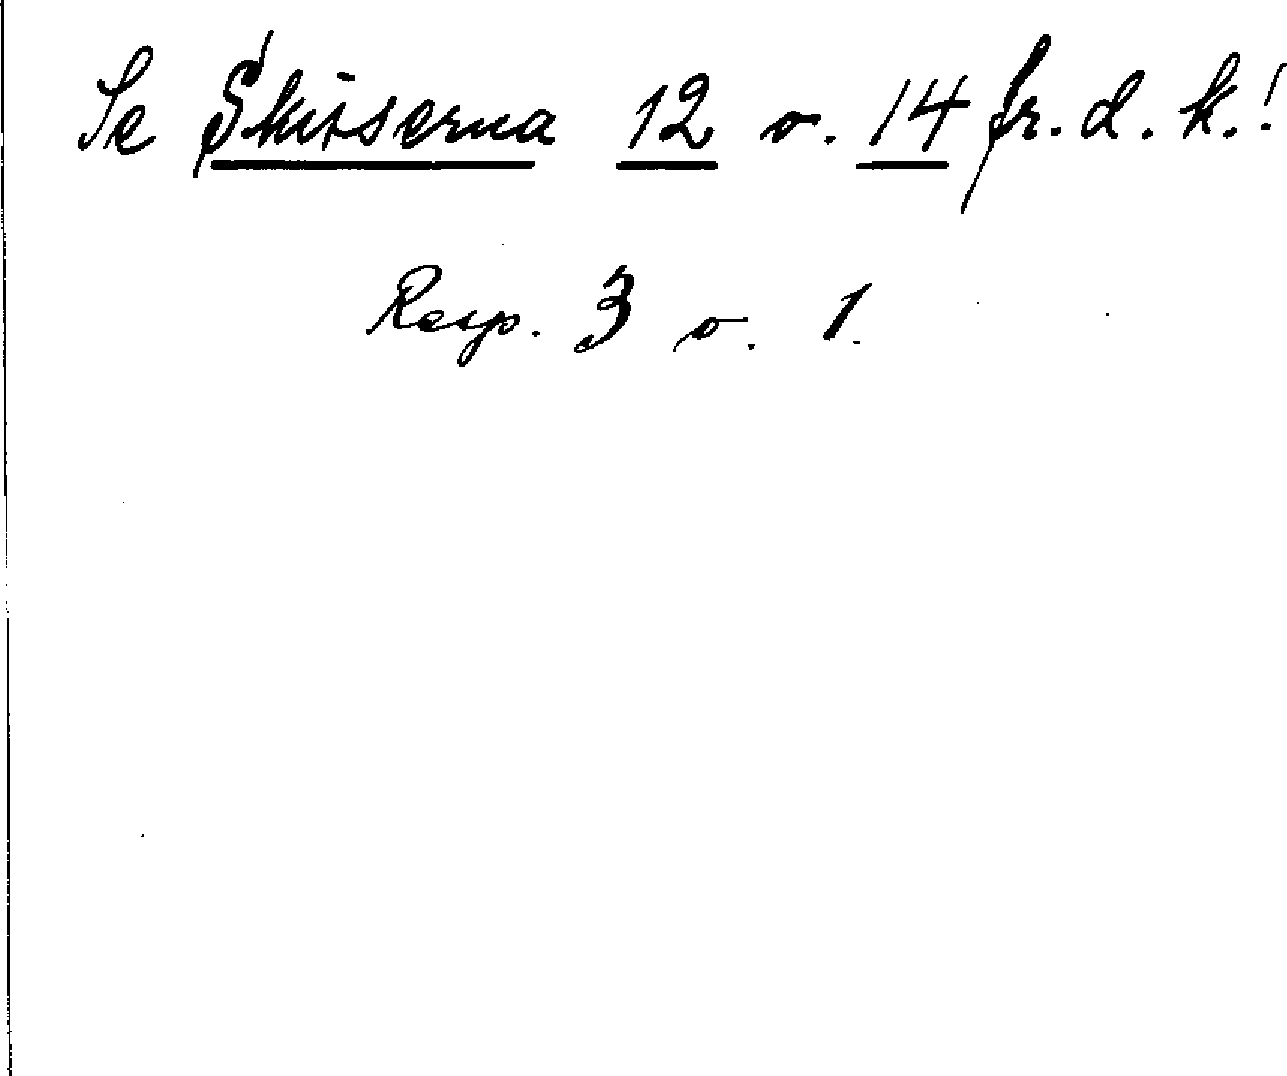 Se Skisserna 12 o. 14 fr. d. k.!
Resp. 3 o. 1.